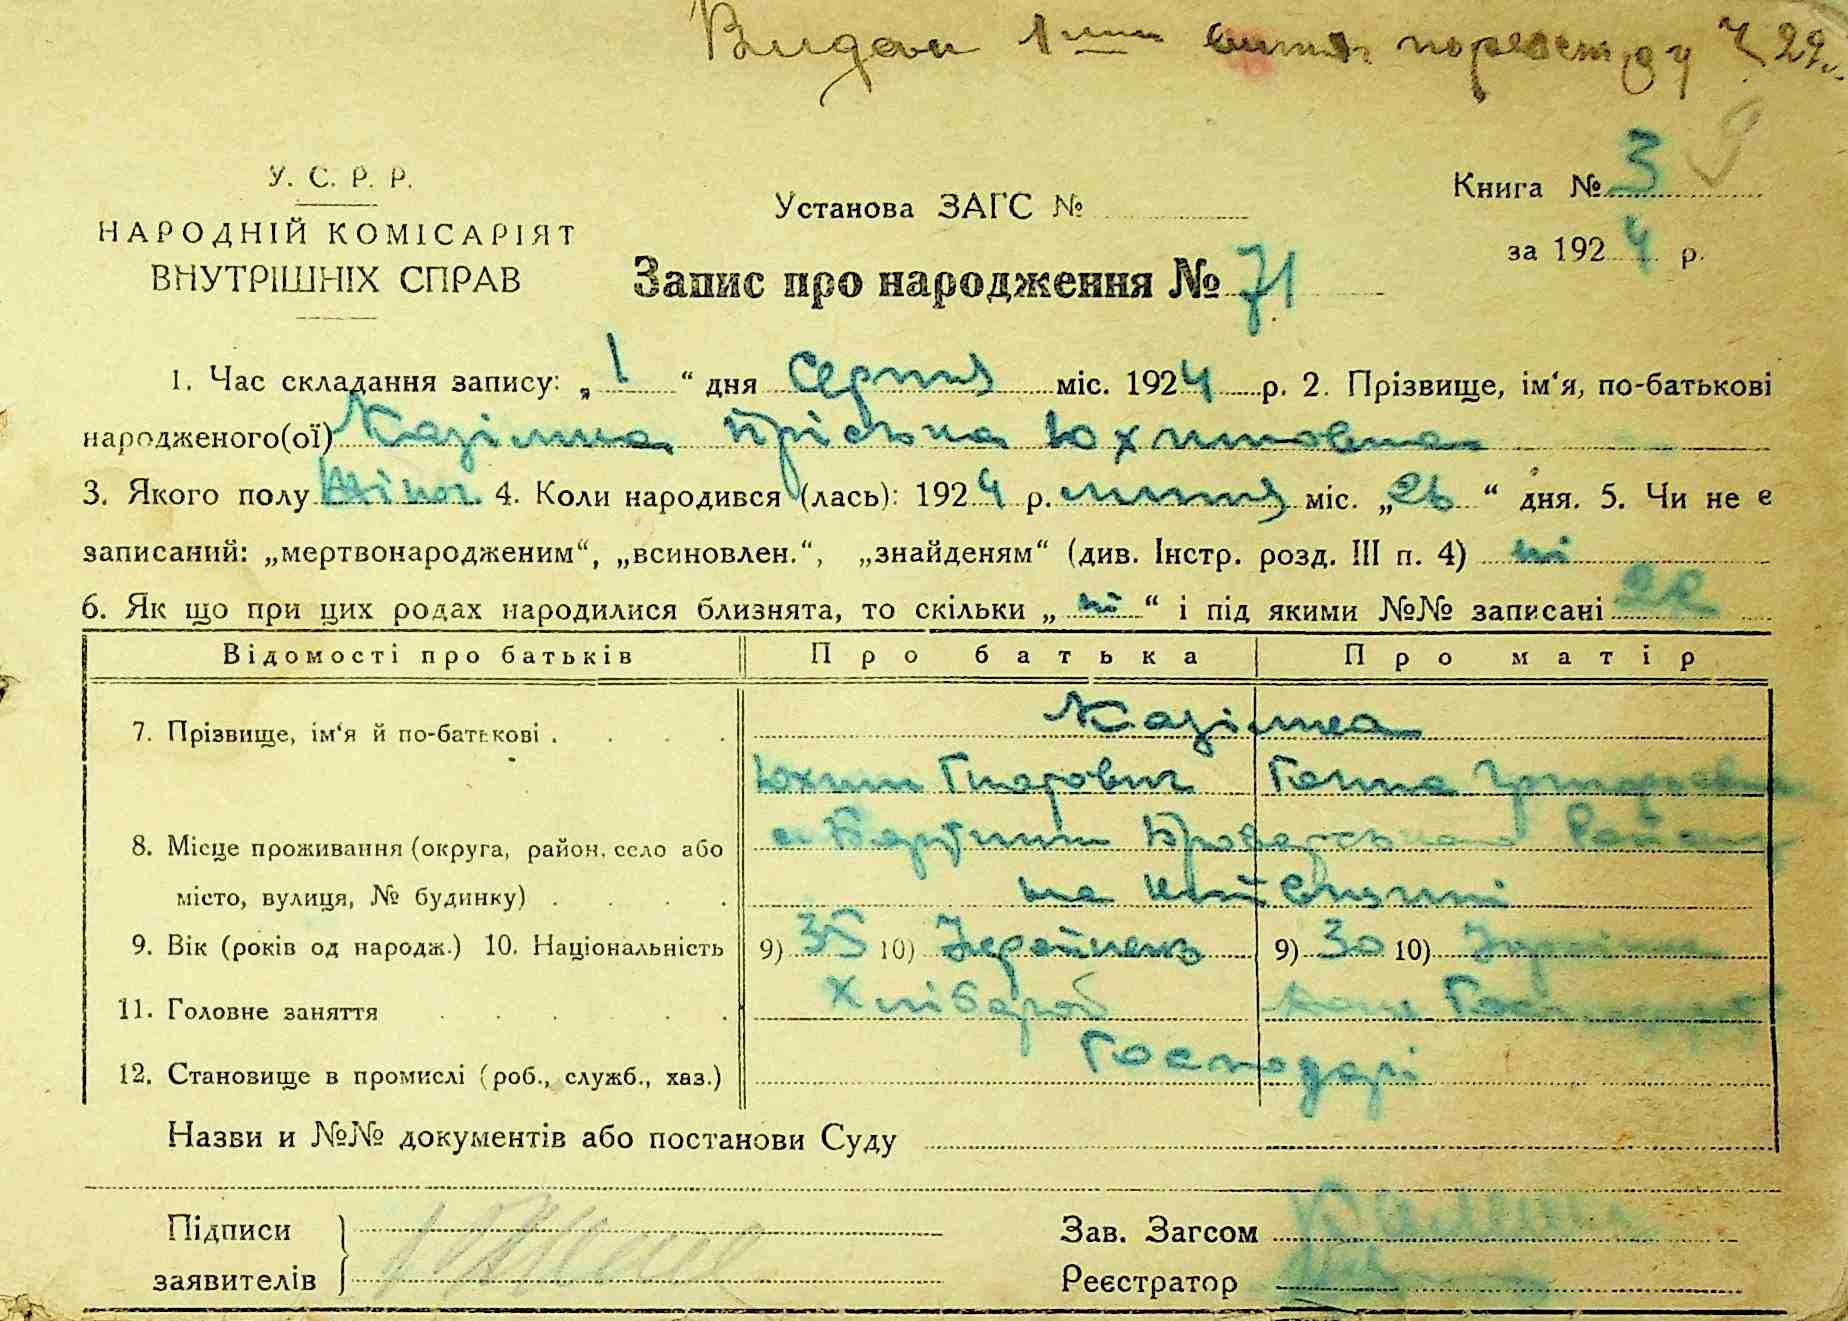 Видан
У. С. Р. Р.
НАРОДНІЙ КОМІСАРІЯТ
ВНУТРІШНІХ СПРАВ
Установа ЗАГС №
Книга № 3 9
за 1924 р.
Запис про народження № 71
1. Час складання запису: „ 1 “ дня Серпня міс. 1924 р. 2. Прізвище, ім‘я, по-батькові
народженого(ої) Казімка Пріська Юхимовна
3. Якого полу жіноч 4. Коли народився (лась): 1924 р. липня міс. „ 26 “ дня. 5. Чи не є
записаний: „мертвонародженим“, „всиновлен.“, „знайденям“ (див. Інстр. розд. III п. 4) ні
6. Як що при цих родах народилися близнята, то скільки „ ні “ і під якими №№ записані
Відомості про батьків Про батька Про матір
7. Прізвище, ім‘я й по-батькові . Казімка
Юхим Ганна
8. Місце проживання (округа, район, село або Броварського Району
місто, вулиця, № будинку) . на Київщині
9. Вік (років од народж.) 10. Національність 9) 35 10) Українець 9) 30 10) Українка
11. Головне заняття Хлібороб
12. Становище в промислі (роб., служб., хаз.) Господарі
Назви и №№ документів або постанови Суду
Підписи
заявителів
Зав. Загсом
Реєстратор